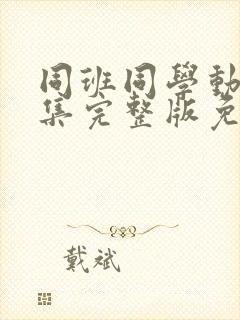 同班同學動
集完整版免
戴斌